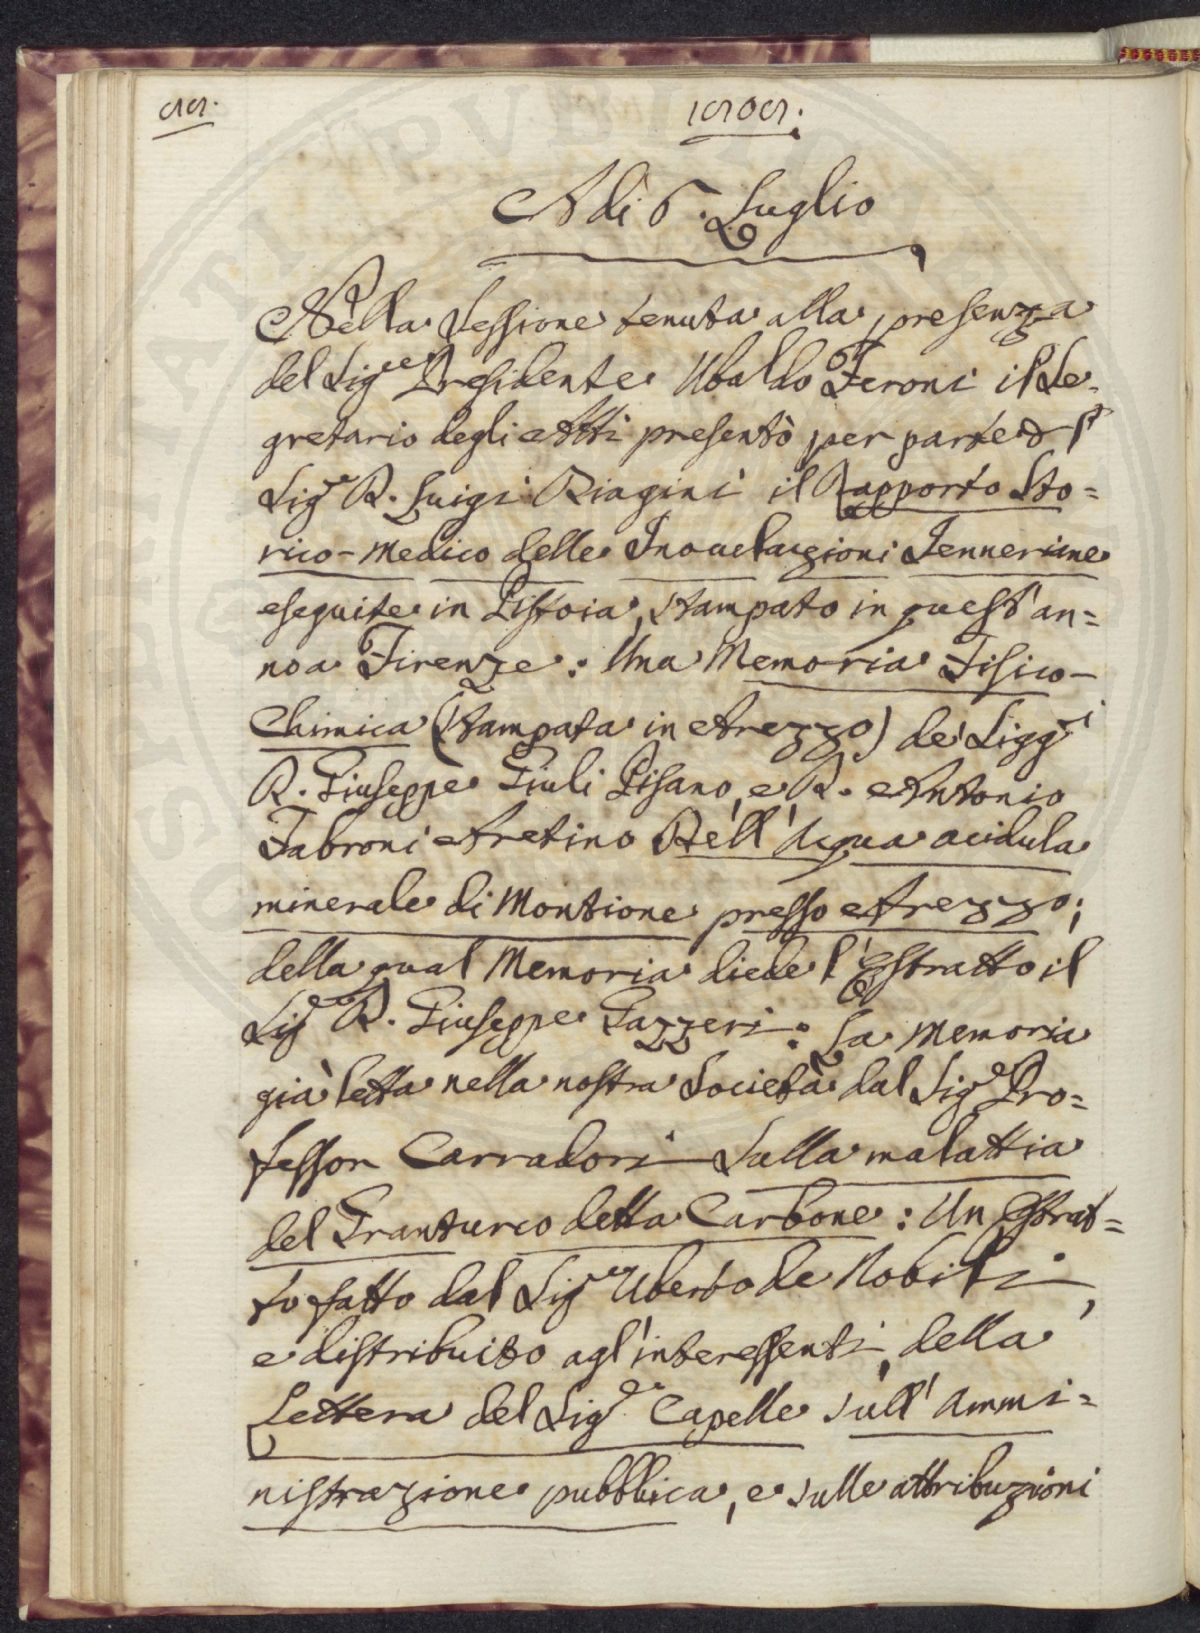 88.
1808.
Adì 6. Luglio
Nella Sessione tenuta alla presenza
del Sig.re Presidente Ubaldo Feroni il Se=
gretario degli Atti presentò per parte del
Sig.e D. Luigi Biagini il Rapporto Sto=
rico-Medico delle Inoculazioni Jenneriane
eseguite in Pistoia, stampato in quest'an=
no a Firenze: Una Memoria Fisico-
Chimica (stampata in Arezzo) de' Sigg.i
D. Giuseppe Giuli Pisano, e D. Antonio
Fabroni Aretino Dell'Acqua acidula
minerale di Montione presso Arezzo;
della qual Memoria diede l'Estratto il
Sig.e D. Giuseppe Gazzeri: La Memoria
già letta nella nostra Società dal Sig.e Pro=
fessor Carradori sulla malattia
del Granturco detta Carbone: Un Estrat=
to fatto dal Sig.e Uberto de Nobili,
e distribuito agl'interessenti, della
Lettera del Sig.e Capelle sull'Ammi=
nistrazione pubblica, e sulle attribuzioni